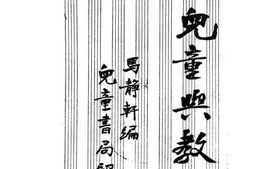 兒童與教
馬静軒编
兒童書局